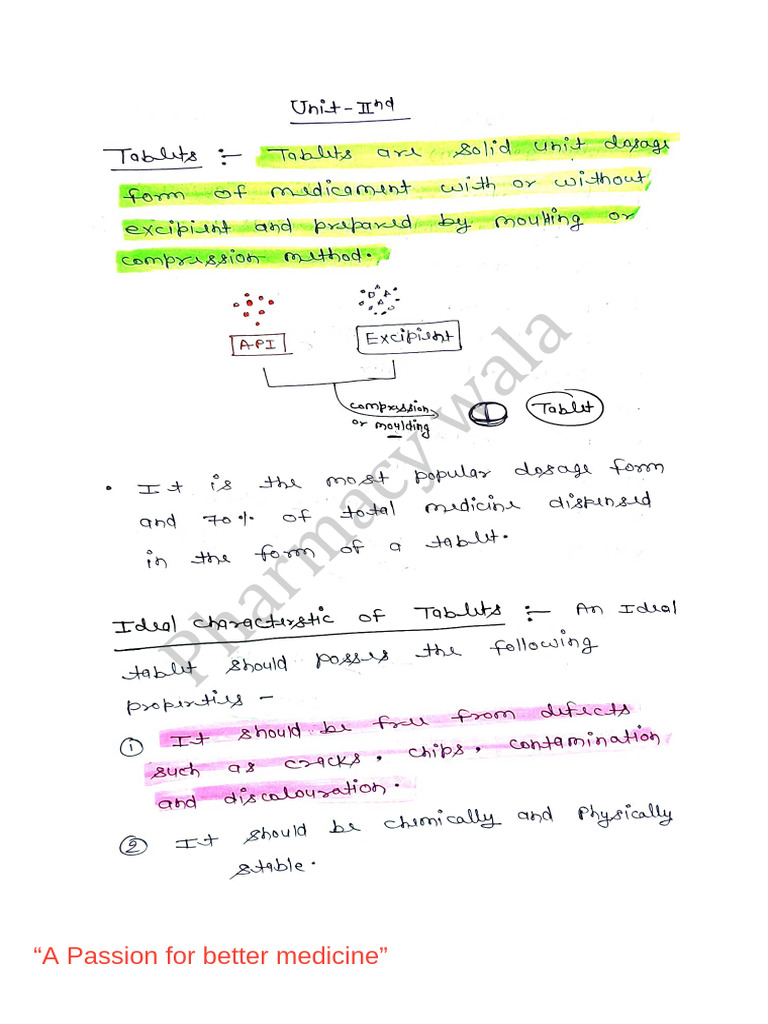 Unit-IInd
Tablets :- Tablets are solid unit dosage
form of medicament with or without
excipient and prepared by moulting or
compression method.
API
Excipient
compression
or moulding
Tablet
• It is the most popular dosage form
and 70% of total medicine dispensed
in the form of a tablet.
Ideal characterstic of Tablets :- An Ideal
tablet should posses the following
properties -
① It should be free from defects
such as cracks, chips, contamination
and discolouration.
② It should be chemically and Physically
stable.
Pharmacy wala
“A Passion for better medicine”